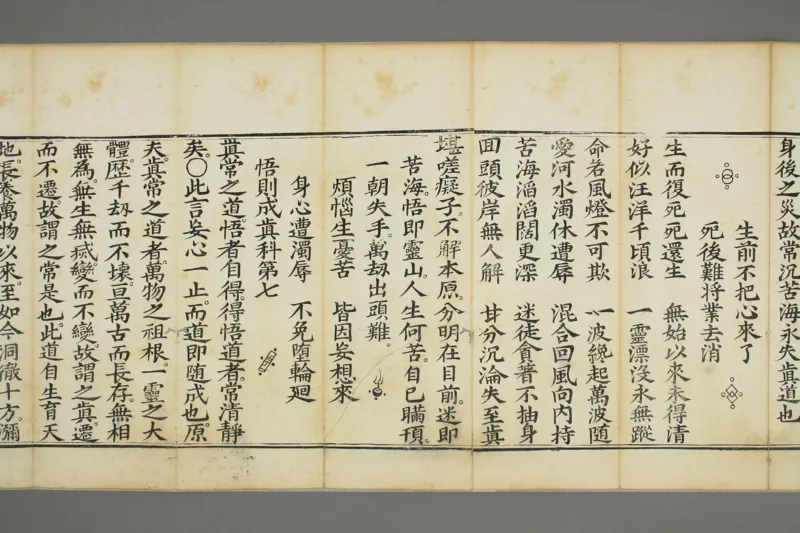 身後之災故常沉苦海永失眞道也
生前不把心來了
死後難將業去消
生而復死死還生　無始以來未得清
好似汪洋千頃浪　一靈漂沒永無蹤
命若風燈不可欺　一波纔起萬波随
愛河水濁休遭辱　混合回風向內持
苦海滔滔闊更深　迷徒貪著不抽身
回頭彼岸無人解　甘分沉淪失至眞
堪嗟癡子。不解本原。分明在目前。迷即
苦海。悟即靈山。人生何苦。自己瞞頇。
一朝失手。萬劫出頭難。
煩惱生憂苦　皆因妄想來
身心遭濁辱　不免墮輪迴
悟則成眞科第七
眞常之道。悟者自得。得悟道者。常清靜
矣。〇此言妄心一止。而道即随成也。原
夫。眞常之道者。萬物之祖根。一靈之大
體。歷千劫而不壞。亘萬古而長存。無相
無為。無生無滅。變而不變。故謂之眞。遷
而不遷。故謂之常是也。此道自生育天
地。長養萬物以來。至如今洞徹十方。瀰